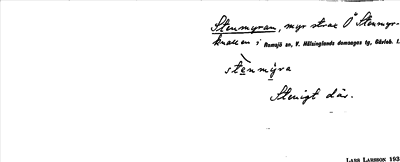 Stenmyran, myr strax Ö Stenmyr-
knallen i Ramsjö sn, V. Hälsinglands domsagas tg, Gävleb. l.
stenmýra
Stenigt där.
LARS LARSSON 193